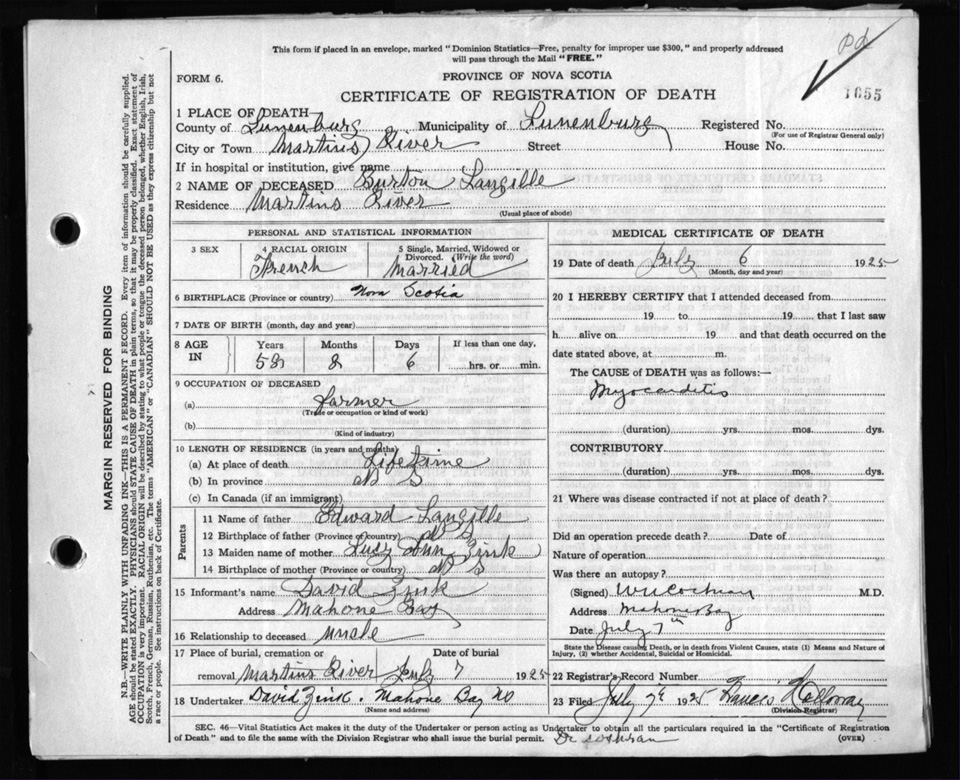 Pd
1655
This form if placed in an envelope, marked "Dominion Statistics—Free, penalty for improper use $300," and properly addressed
will pass through the Mail "FREE."
FORM 6.
PROVINCE OF NOVA SCOTIA
CERTIFICATE OF REGISTRATION OF DEATH
1 PLACE OF DEATH
County of Lunenburg Municipality of Lunenburg Registered No.
(For use of Registrar General only)
City or Town Martins River Street House No.
If in hospital or institution, give name
2 NAME OF DECEASED Burton Langille
Residence Martins River
(Usual place of abode)
PERSONAL AND STATISTICAL INFORMATION
3 SEX
4 RACIAL ORIGIN
French
5 Single, Married, Widowed or
Divorced. (Write the word)
Married
6 BIRTHPLACE (Province or country) Nova Scotia
7 DATE OF BIRTH (month, day and year)
8 AGE IN Years Months Days If less than one day,
58 8 6 hrs. or min.
9 OCCUPATION OF DECEASED
(a) Farmer
(Trade or occupation or kind of work)
(b)
(Kind of industry)
10 LENGTH OF RESIDENCE (in years and months)
(a) At place of death Life time
(b) In province N S
(c) In Canada (if an immigrant)
Parents
11 Name of father Edward Langille
12 Birthplace of father (Province or country) N S
13 Maiden name of mother Lucy Ann Zink
14 Birthplace of mother (Province or country) N S
15 Informant's name David Zink
Address Mahone Bay
16 Relationship to deceased Uncle
17 Place of burial, cremation or Date of burial
removal Martins River July 7 1925
18 Undertaker David Zink. Mahone Bay NS
(Name and address)
MEDICAL CERTIFICATE OF DEATH
19 Date of death July 6 1925
(Month, day and year)
20 I HEREBY CERTIFY that I attended deceased from
19 to 19 that I last saw
h alive on 19 and that death occurred on the
date stated above, at m.
The CAUSE of DEATH was as follows:—
Myocarditis
(duration) yrs. mos. dys.
CONTRIBUTORY
(duration) yrs. mos. dys.
21 Where was disease contracted if not at place of death?
Did an operation precede death? Date of
Nature of operation
Was there an autopsy?
(Signed) W Cochran M.D.
Address Mahone Bay
Date July 7th
State the Disease causing Death, or in death from Violent Causes, state (1) Means and Nature of
Injury, (2) whether Accidental, Suicidal or Homicidal.
22 Registrar's Record Number
23 Filed July 7th 1925 Francis Holloway
(Division Registrar)
SEC. 46—Vital Statistics Act makes it the duty of the Undertaker or person acting as Undertaker to obtain all the particulars required in the "Certificate of Registration
of Death" and to file the same with the Division Registrar who shall issue the burial permit. Dr Cochran (OVER)
MARGIN RESERVED FOR BINDING
N.B.—WRITE PLAINLY WITH UNFADING INK—THIS IS A PERMANENT RECORD. Every item of information should be carefully supplied.
AGE should be stated EXACTLY. PHYSICIANS should STATE CAUSE OF DEATH in plain terms, so that it may be properly classified. Exact statement of
OCCUPATION is very important. RACIAL ORIGIN will be described by stating to what people or tongue the deceased person belonged, whether English, Irish,
Scotch, French, German, Russian, Ruthenian, etc. The terms "AMERICAN" or "CANADIAN" SHOULD NOT BE USED as they express citizenship but not
a race or people. See instructions on back of Certificate.